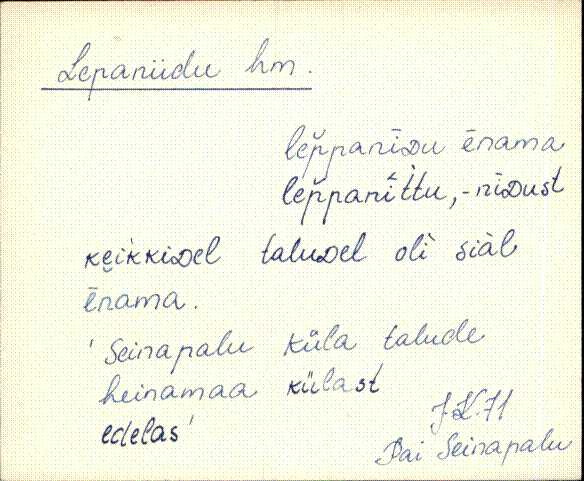 Lepaniidu hm.
lep̆panīᴅu ēnama
lep̆panīt̀tu, -nīᴅust
ke̮ikkiᴅel taluᴅel oli siäl
ēnama.
'Seinapalu küla talude
heinamaa külast
edelas'
J.K. 71
Pai Seinapalu